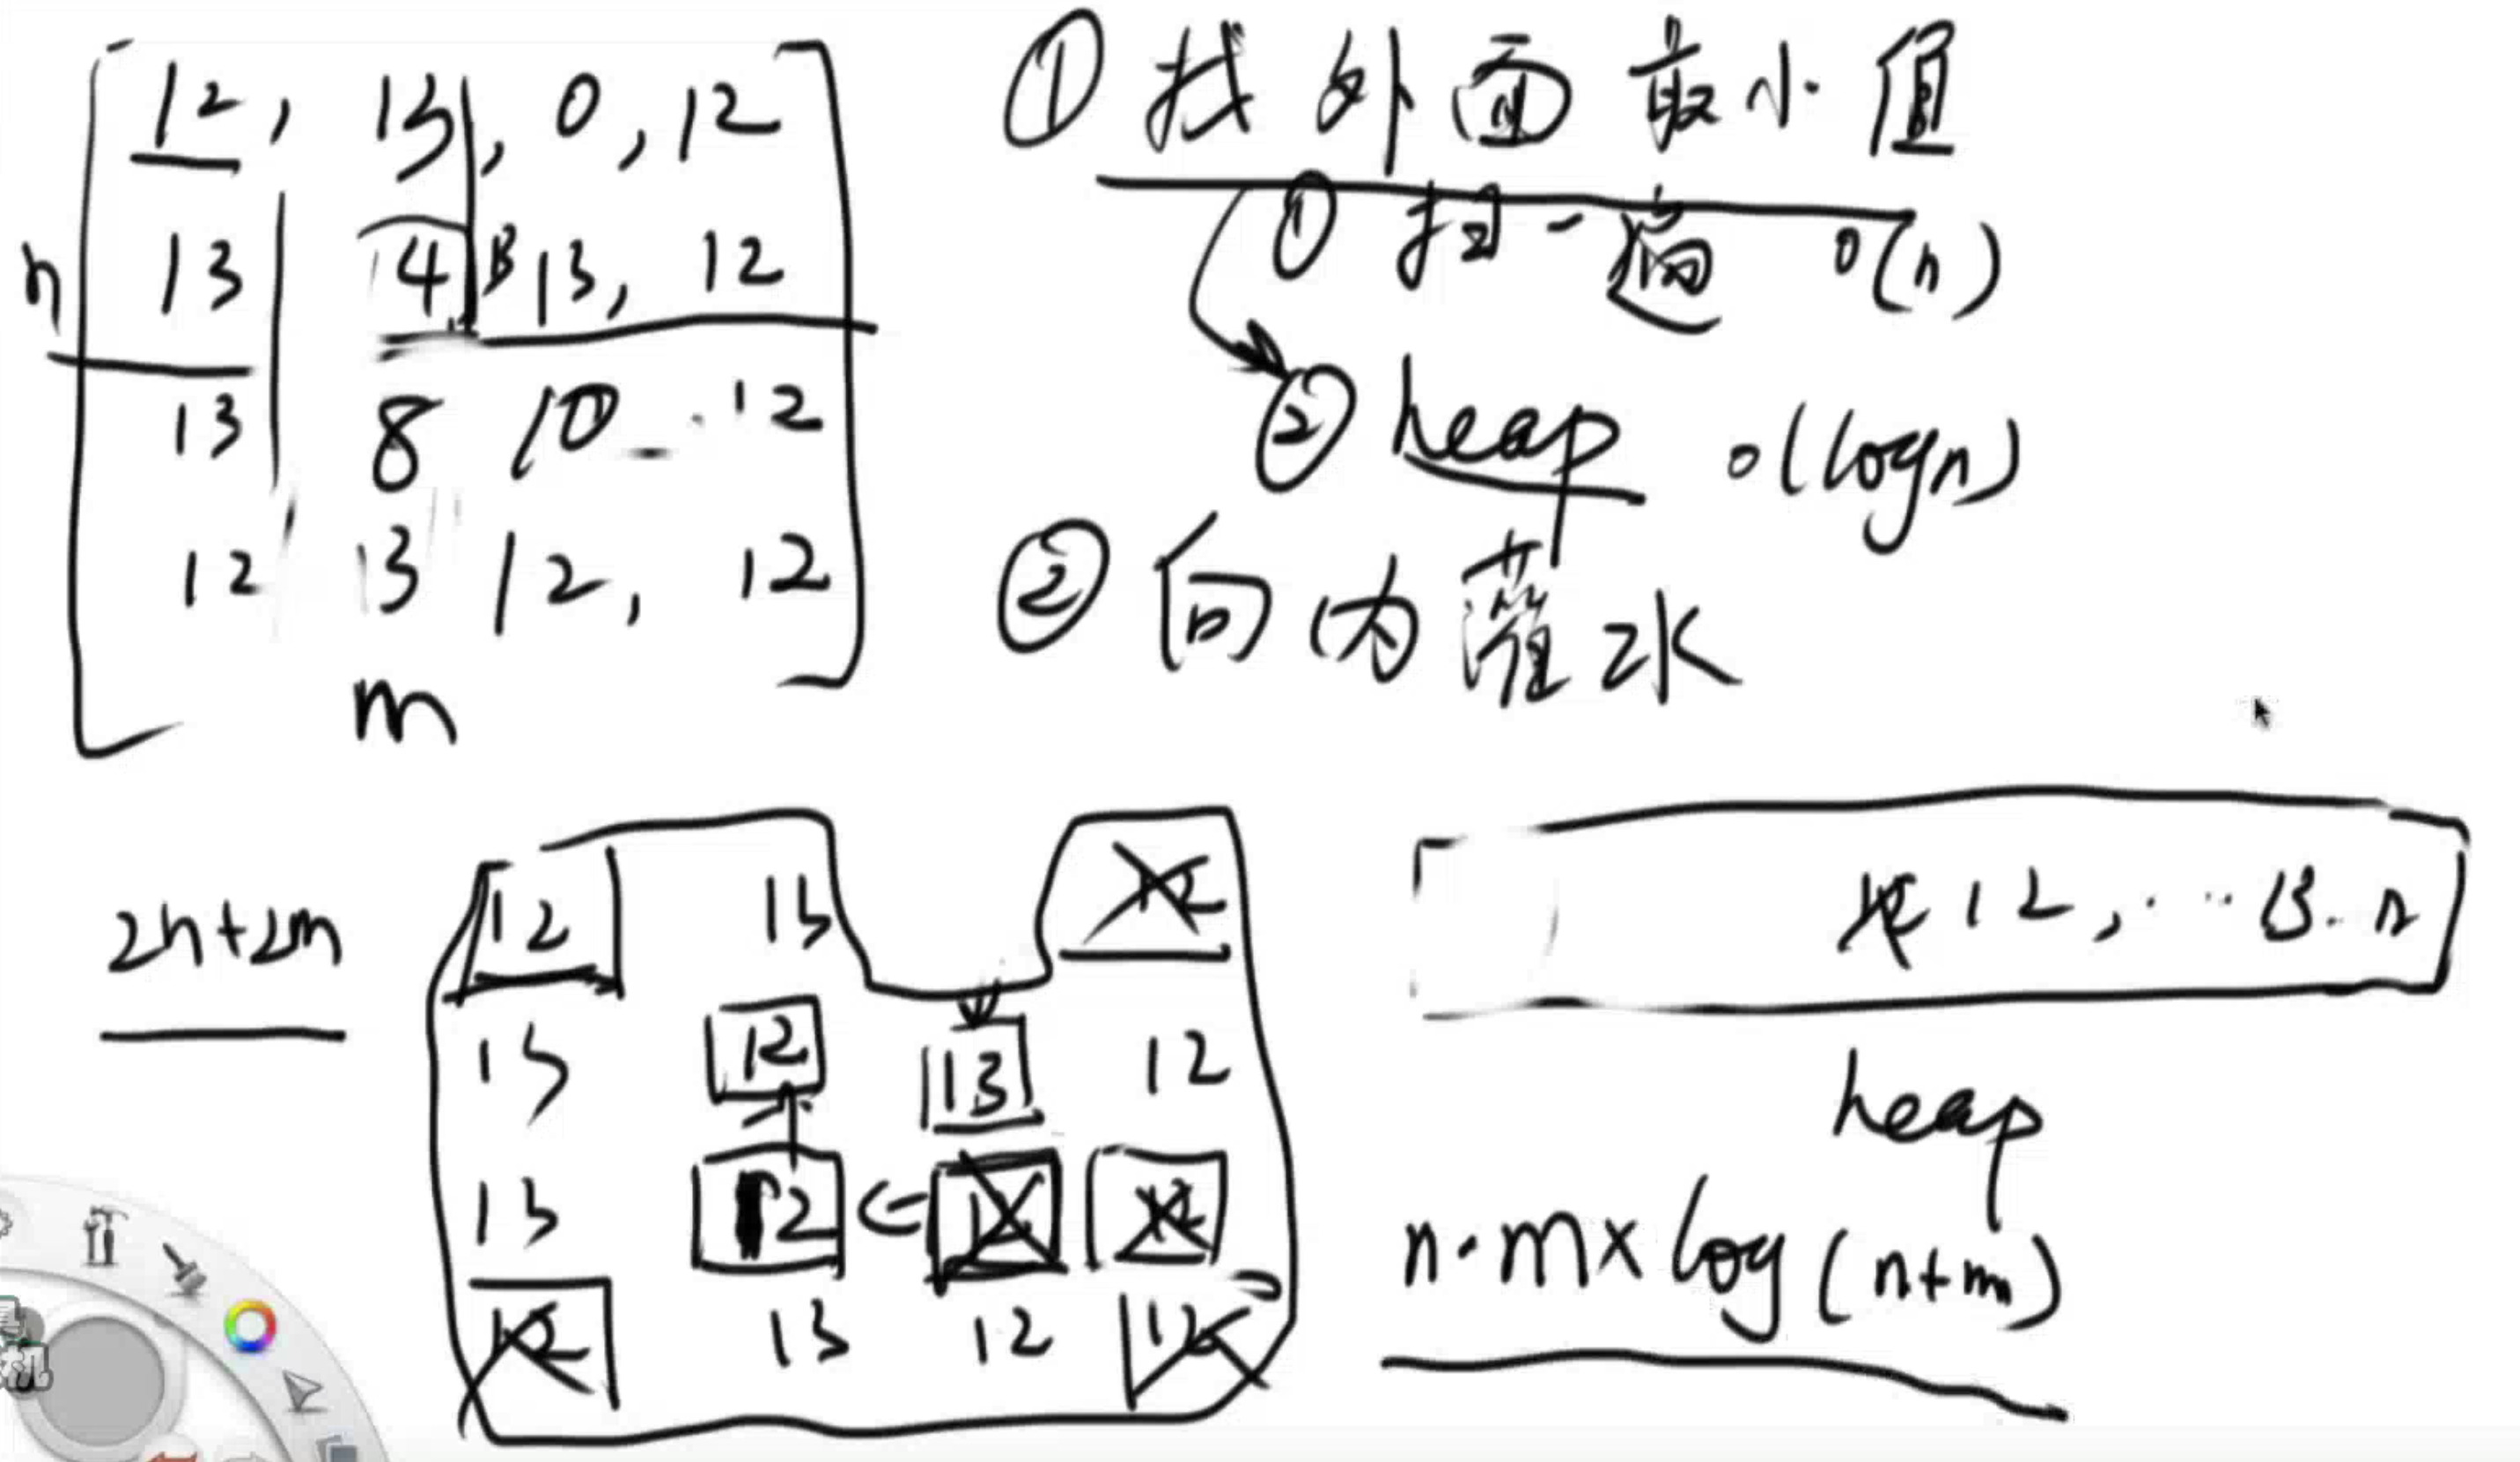 12, 13, 0, 12
n 13 4 13 13, 12
13 8 10 12
12 13 12, 12
m
① 找外面最小值
① 扫一遍 O(n)
② heap O(logn)
② 向内灌水
2n+2m
12 13 12
13 12 13 12
13 12 12 12
12 13 12 12
12 12, ... 13.
heap
n·m×log(n+m)
机